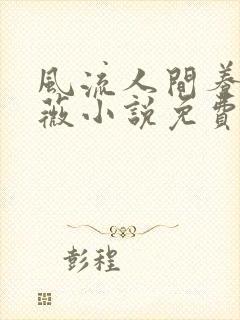 風流人間養
薇小說免費
彭程